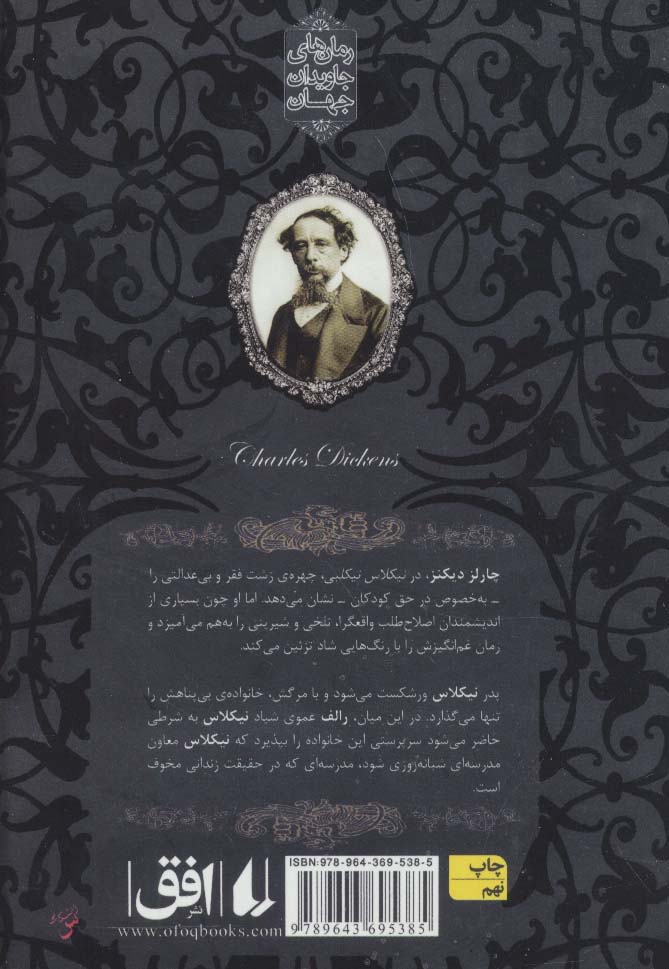 رمان‌های
جاویدان
جهان
Charles Dickens
چارلز دیکنز، در نیکلاس نیکلبی، چهره‌ی زشت فقر و بی‌عدالتی را
ـ به‌خصوص در حق کودکان ـ نشان می‌دهد. اما او چون بسیاری از
اندیشمندان اصلاح‌طلب واقعگرا، تلخی و شیرینی را به‌هم می‌آمیزد و
رمان غم‌انگیزش را با رنگ‌هایی شاد تزئین می‌کند.
پدر نیکلاس ورشکست می‌شود و با مرگش، خانواده‌ی بی‌پناهش را
تنها می‌گذارد. در این میان، رالف عموی شیاد نیکلاس به شرطی
حاضر می‌شود سرپرستی این خانواده را بپذیرد که نیکلاس معاون
مدرسه‌ای شبانه‌روزی شود، مدرسه‌ای که در حقیقت زندانی مخوف
است.
چاپ
نهم
ISBN:978-964-369-538-5
9789643695385
نشر
افق
www.ofoqbooks.com